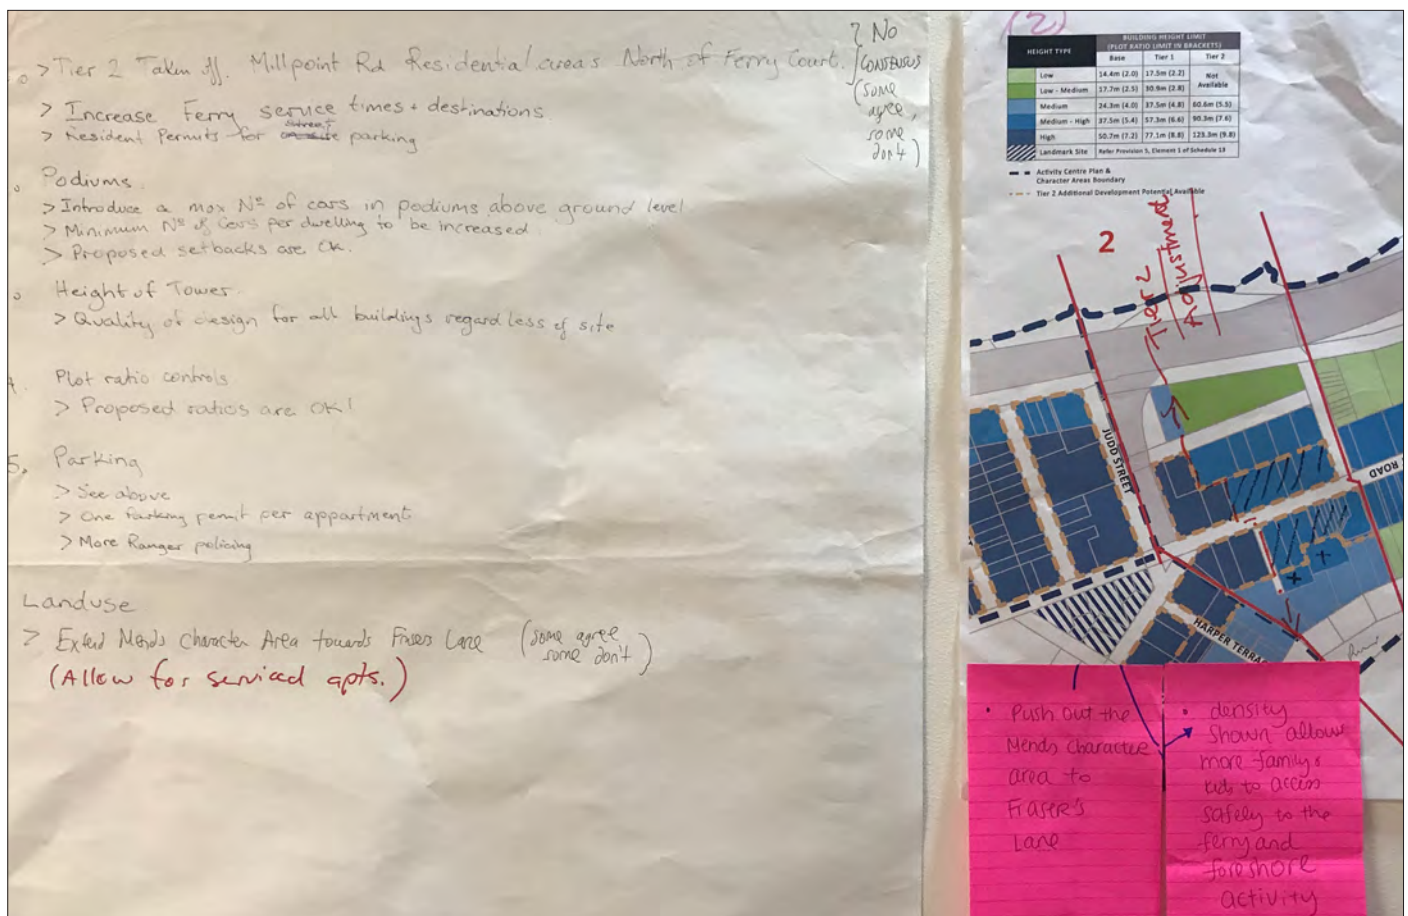 > Tier 2 Taken off. Millpoint Rd Residential areas North of Ferry Court.
? No
consensus
(some
agree,
some
don't)
> Increase Ferry service times + destinations
> Resident Permits for street parking
Podiums.
> Introduce a max Nº of cars in podiums above ground level
> Minimum Nº of Cars per dwelling to be increased.
> Proposed setbacks are OK.
Height of Tower.
> Quality of design for all buildings regardless of site
4. Plot ratio controls
> Proposed ratios are OK!
5. Parking
> See above
> One Parking permit per appartment
> More Ranger policing
Landuse
> Extend Mends Character Area towards Frasers Lane (some agree
some don't)
(Allow for serviced apts.)
(2)
HEIGHT TYPE
BUILDING HEIGHT LIMIT
(PLOT RATIO LIMIT IN BRACKETS)
Base Tier 1 Tier 2
Low 14.4m (2.0) 17.5m (2.2) Not Available
Low - Medium 17.7m (2.5) 30.9m (2.8)
Medium 24.3m (4.0) 37.5m (4.8) 60.6m (5.5)
Medium - High 37.5m (5.4) 57.3m (6.6) 90.3m (7.6)
High 50.7m (7.2) 77.1m (8.8) 123.3m (9.8)
Landmark Site Refer Provision 5, Element 1 of Schedule 13
Activity Centre Plan &
Character Areas Boundary
Tier 2 Additional Development Potential Available
2
Tier 2
Adjustment
JUDD STREET
ROAD
HARPER TERRAC
• Push out the
Mends Character
area to
Fraser's
Lane
• density
shown allows
more family &
kids to access
safely to the
ferry and
foreshore
activity